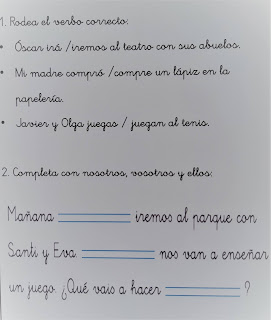 1. Rodea el verbo correcto:
• Óscar irá /iremos al teatro con sus abuelos.
• Mi madre compró /compre un lápiz en la
papelería.
• Javier y Olga juegas / juegan al tenis.
2. Completa con nosotros, vosotros y ellos:
Mañana ________ iremos al parque con
Santi y Eva. ________ nos van a enseñar
un juego. ¿Qué vais a hacer ________ ?